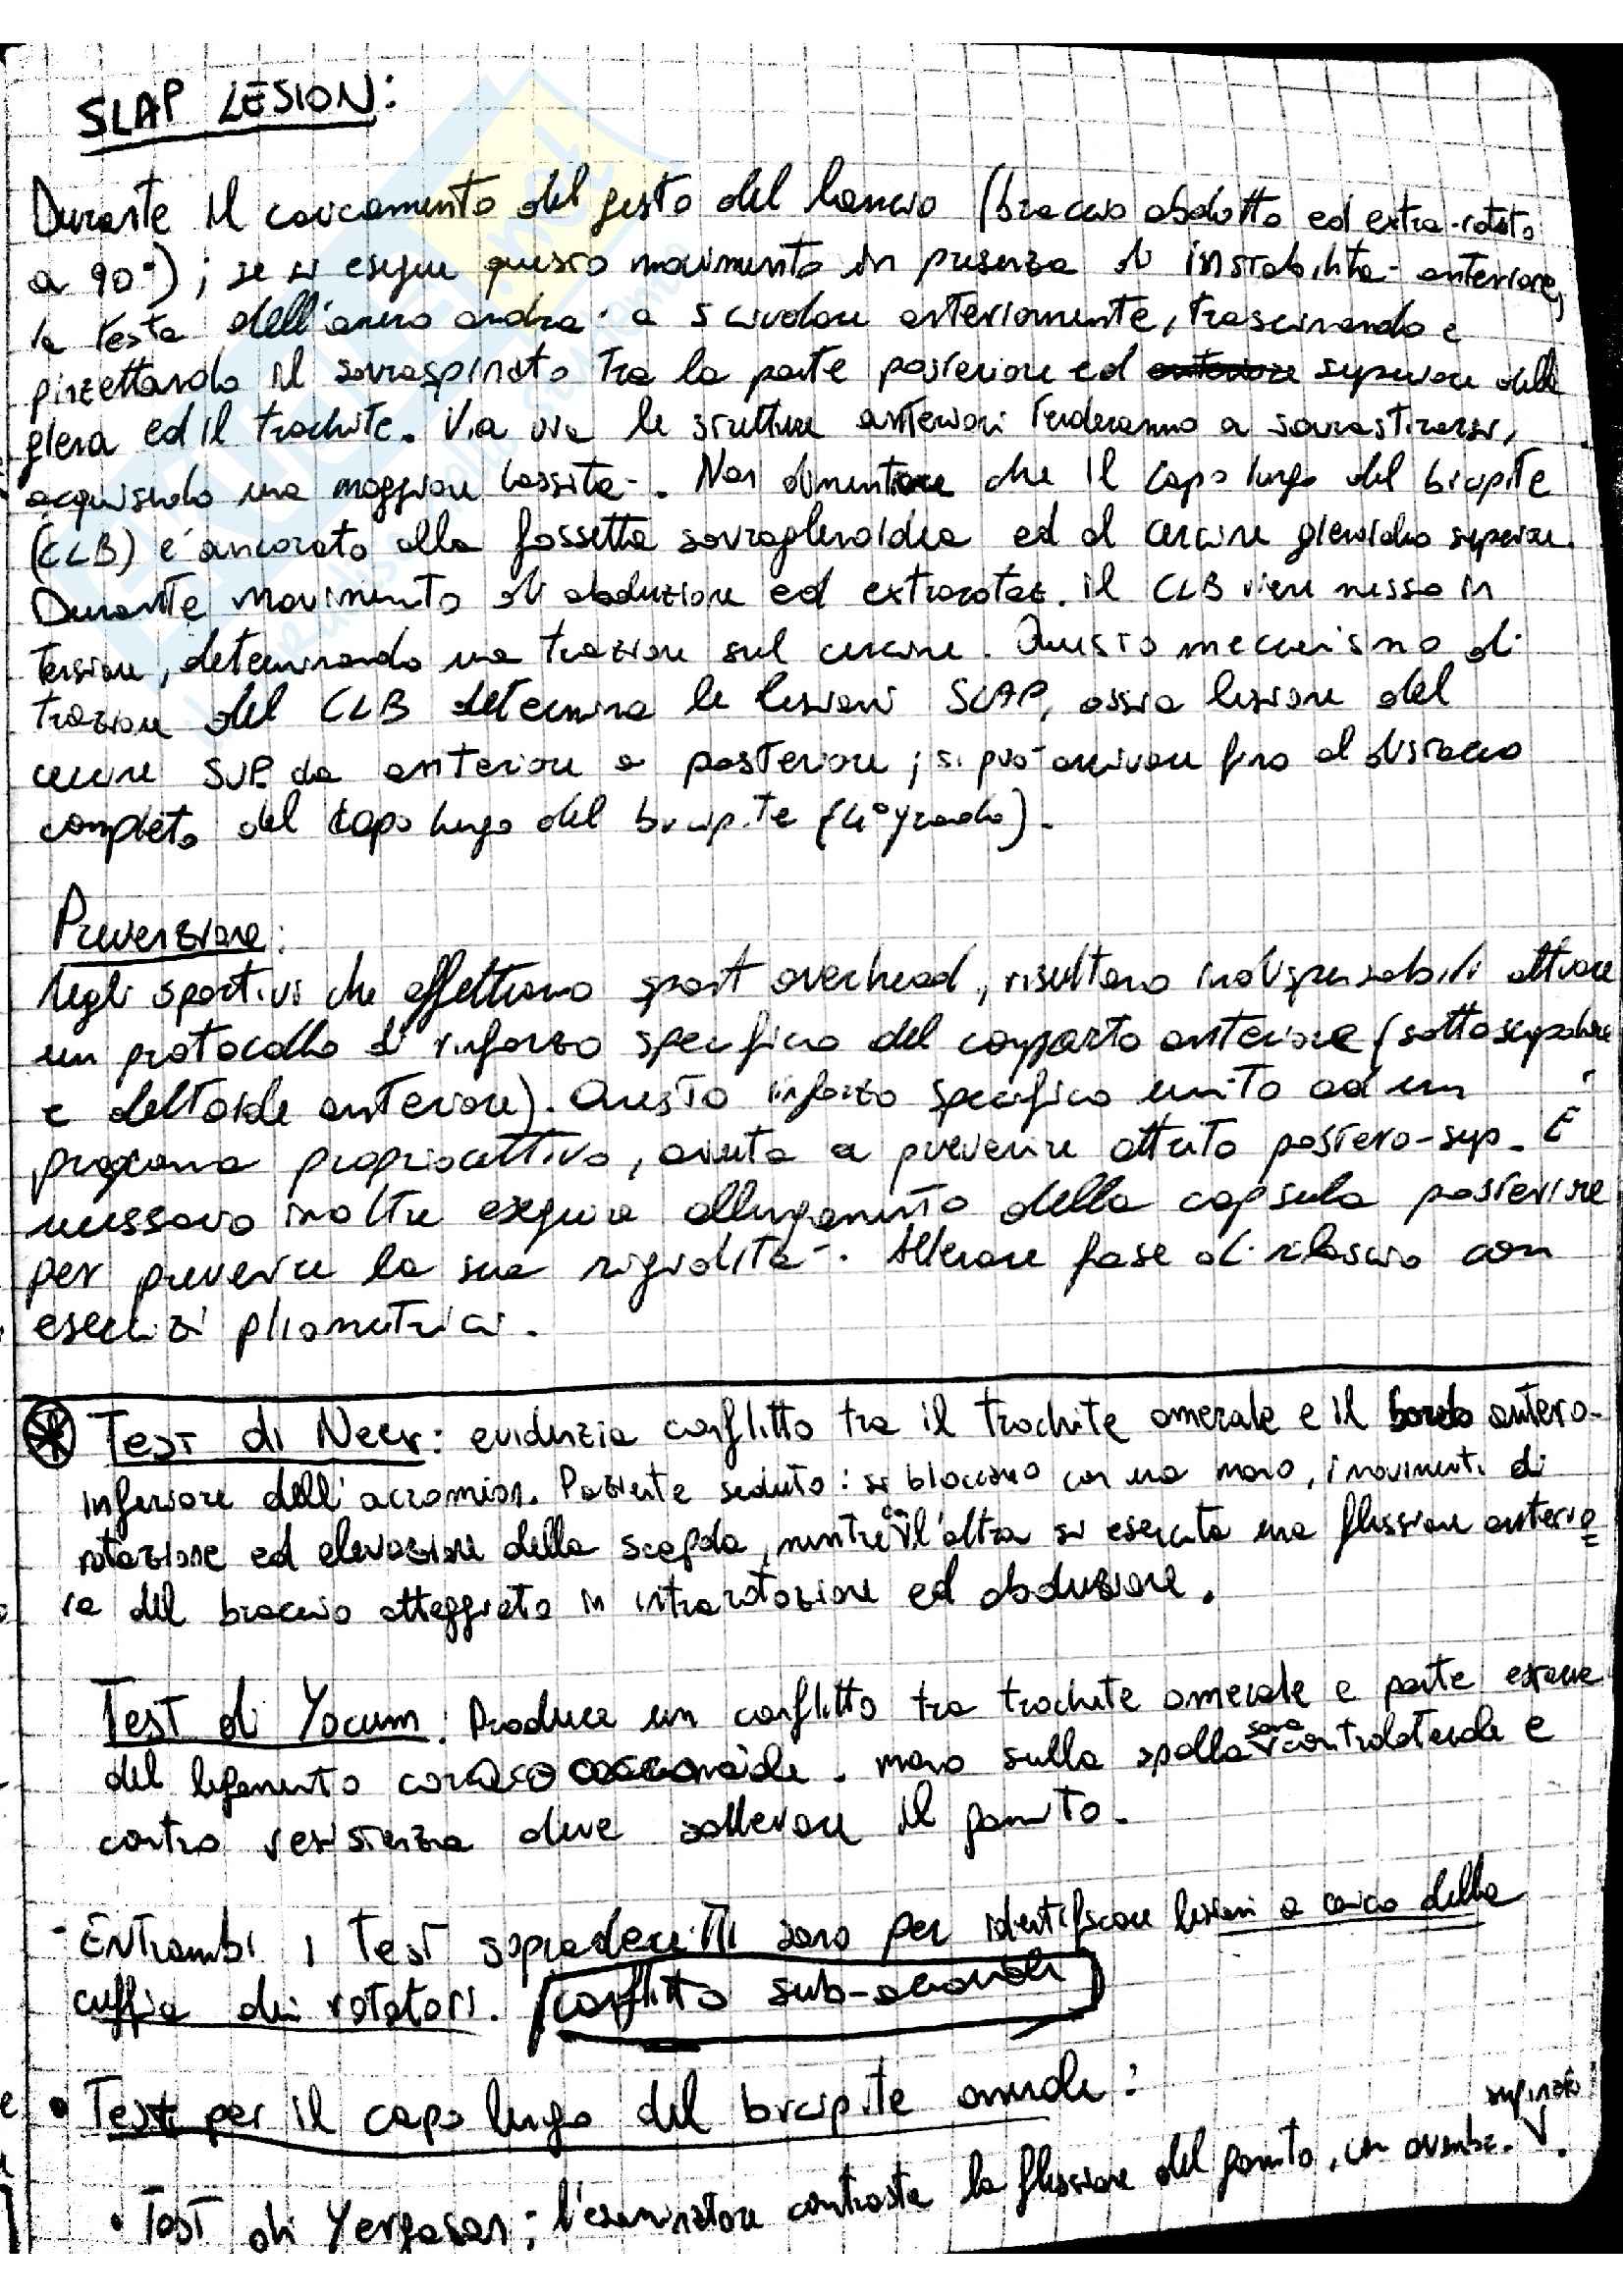 SLAP LESION:
Durante il caricamento del gesto del lancio (braccio abdotto ed extra-rotato
a 90°); se si esegue questo movimento in presenza di instabilità anteriore,
la testa dell'omero andrà a scivolare anteriormente, trascinando e
pinzettando il sovraspinato tra la parte posteriore ed superiore della
glena ed il trochite. Via via le strutture anteriori tenderanno a sovrastirarsi,
acquisendo una maggiore lassità. Non dimenticare che il capo lungo del bicipite
(CLB) è ancorato alla fossetta sovraglenoidea ed al cercine glenoideo superiore.
Durante movimento di abduzione ed extrarotaz. il CLB viene messo in
tensione, determinando una trazione sul cercine. Questo meccanismo di
trazione del CLB determina le lesioni SLAP, ossia lesione del
cercine SUP. da anteriore a posteriore; si può arrivare fino al distacco
completo del capo lungo del bicipite (4° grado).
Prevenzione:
Negli sportivi che effettuano sport overhead, risultano indispensabili attuare
un protocollo di rinforzo specifico del comparto anteriore (sottoscapolare
e deltoide anteriore). Questo rinforzo specifico unito ad un
programma propriocettivo, aiuta a prevenire attrito postero-sup. È
necessario inoltre eseguire allungamento della capsula posteriore
per prevenire la sua rigidità. Allenare fase di rilascio con
esercizi pliometrici.
Test di Neer: evidenzia conflitto tra il trochite omerale e il bordo antero-
inferiore dell'acromion. Paziente seduto: si bloccano con una mano, i movimenti di
rotazione ed elevazione della scapola, mentre con l'altra si esercita una flessione anterio
re del braccio atteggiato in intrarotazione ed abduzione.
Test di Yocum: Produce un conflitto tra trochite omerale e parte esterna
del legamento coraco . mano sulla spalla sana controlaterale e
contro resistenza deve sollevare il gomito.
- Entrambi i test sopradescritti sono per identificare lesioni a carico della
cuffia dei rotatori. conflitto sub-acromiale
• Test per il capo lungo del bicipite omerale:
• Test di Yergason; l'esaminatore contrasta la flessione del gomito, con avambr. supinato.